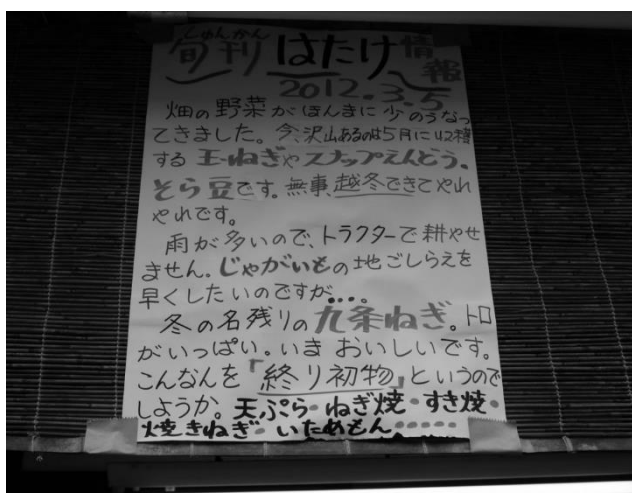 しゅんかん
旬刊 はたけ情報
2012.3.5
畑の野菜がほんまに少のうなっ
てきました。今、沢山あるのは5月に収穫
する玉ねぎやスナップえんどう、
そら豆です。無事、越冬できてやれ
やれです。
雨が多いので、トラクターで耕やせ
ません。じゃがいもの地ごしらえを
早くしたいのですが...。
冬の名残りの九条ねぎ。トロ
がいっぱい。いま おいしいです。
こんなんを「終り初物」というので
しようか。天ぷら・ねぎ焼・すき焼・
焼きねぎ・いためもん・・・・・